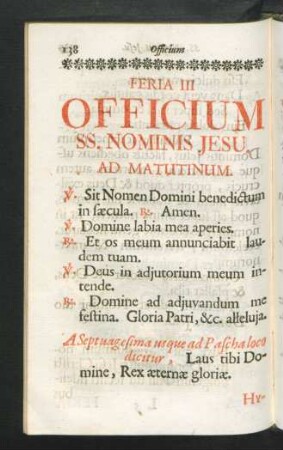 138 Officium
FERIA III
OFFICIUM
SS. NOMINIS JESU
AD MATUTINUM.
℣. Sit Nomen Domini benedictum
in sæcula. ℟. Amen.
℣. Domine labia mea aperies.
℟. Et os meum annunciabit lau-
dem tuam.
℣. Deus in adjutorium meum in-
tende.
℟. Domine ad adjuvandum me
festina. Gloria Patri, &c. alleluja.
A Septuagesima usque ad Pascha loco
dicitur, Laus tibi Do-
mine, Rex æternæ gloriæ.
Hy-